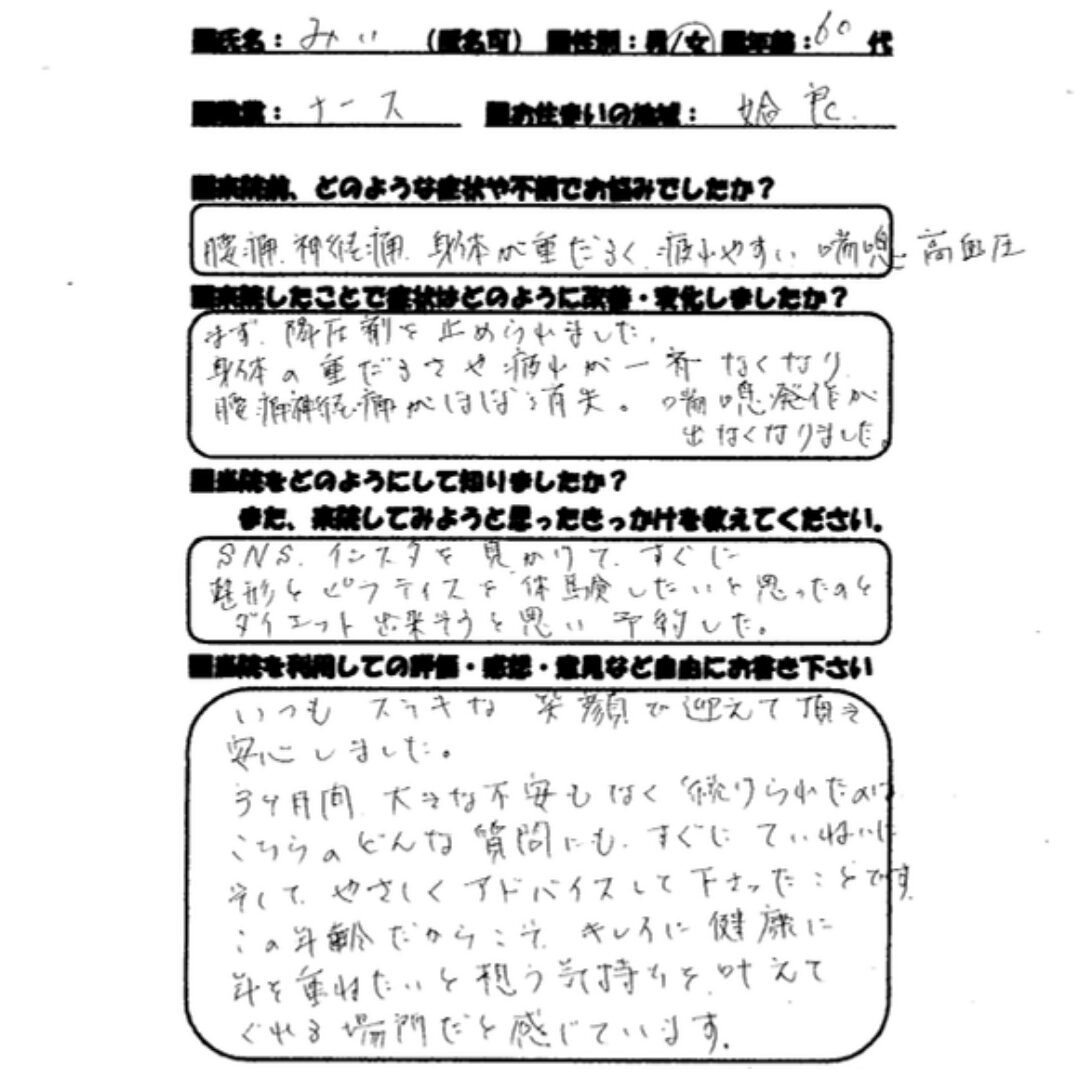 ■氏名：みい （匿名可） ■性別：男/女 ■年齢：60代
■職業：ナース ■お住まいの地域：姶良
■来院前、どのような症状や不調でお悩みでしたか？
腰痛、神経痛、身体が重だるく、疲れやすい 喘息 高血圧
■来院したことで症状はどのように改善・変化しましたか？
まず、降圧剤を止められました、
身体の重だるさや疲れが一斉なくなり、
腰痛神経痛がほぼ消失。喘息発作が
出なくなりました。
■当院をどのようにして知りましたか？
また、来院してみようと思ったきっかけを教えてください。
SNS、インスタを見かけて、すぐに
整形とピラティスを体験したいと思ったのと
ダイエット出来そうと思い予約した。
■当院を利用しての評価・感想・意見など自由にお書き下さい
いつもステキな笑顔で迎えて頂き
安心しました。
3ヶ月間、大きな不安もなく続けられたのは
こちらのどんな質問にも、すぐにていねいに
そして、やさしくアドバイスして下さったことです。
この年齢だからこそ、キレイに健康に
年を重ねたいと想う気持ちを叶えて
くれる場所だと感じています。